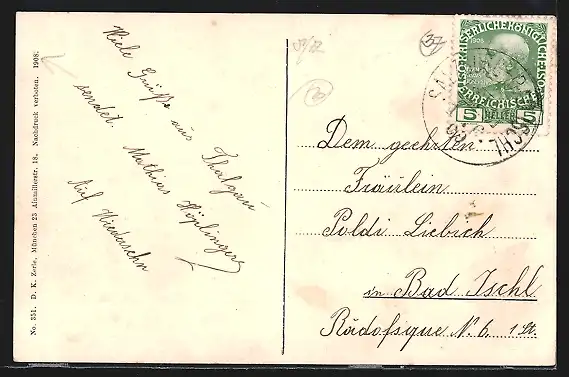 No. 351. D. K. Zerle, München 23 Aiumillerstr. 18. Nachdruck verboten. 1908.
Viele Grüße aus Thalgau
sendet. Mathias Höplinger
Auf Wiedersehn
37
KAISERLICHE KÖNIGLICHE ÖSTERREICHISCHE
1908
5 HELLER 5
ISCHL
Dem geehrten
Fräulein
Poldi Liebich
in Bad Ischl.
N. 6. 1 St.